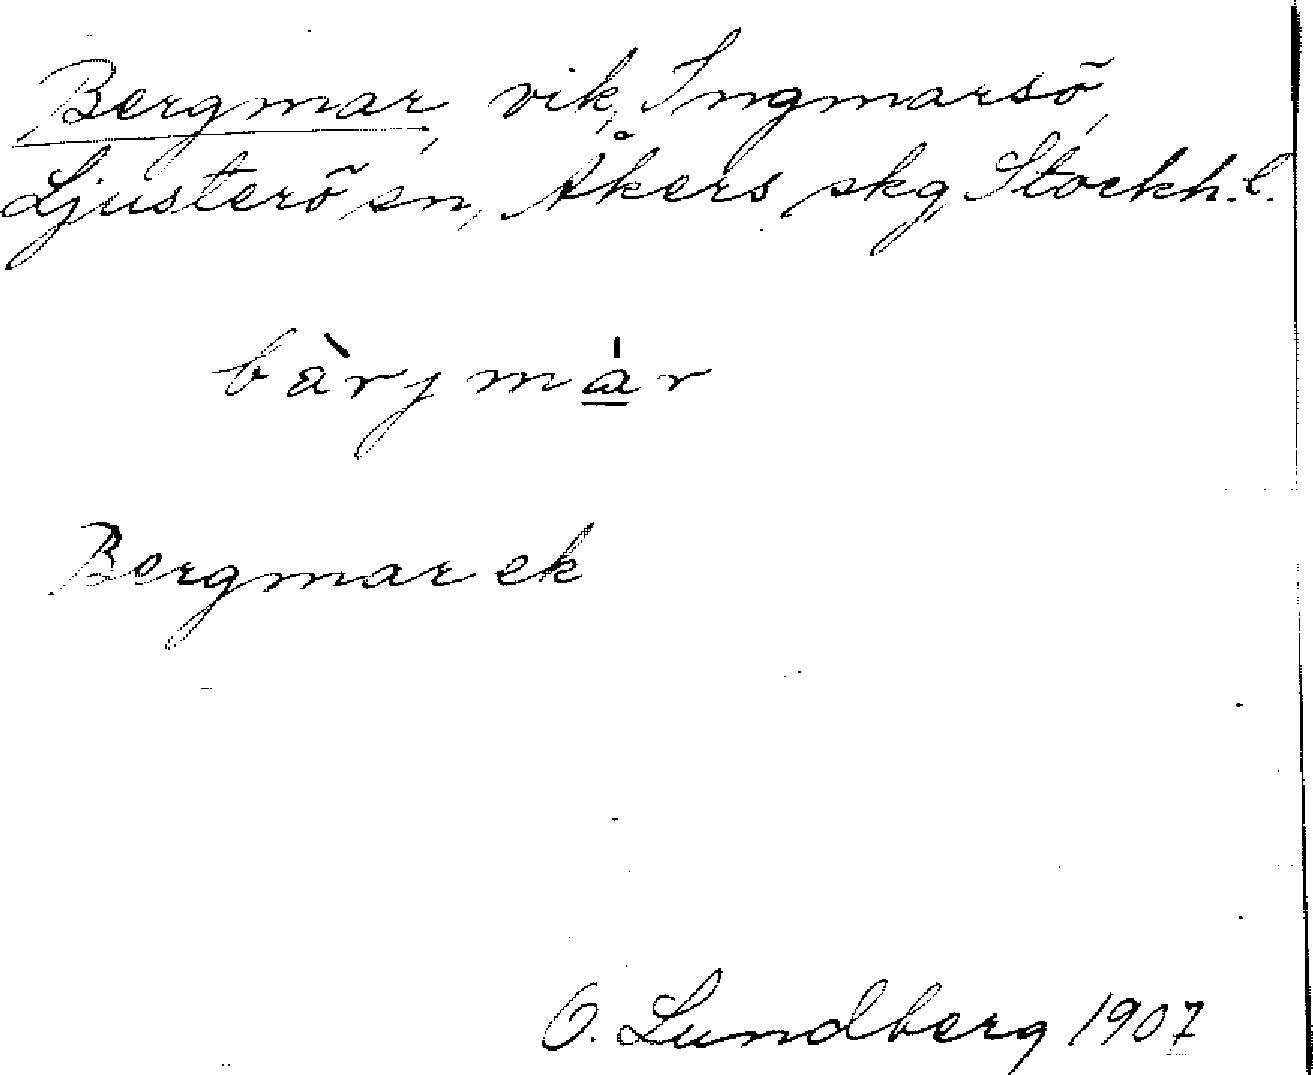 Bergmar, vik, Ingmarsö,
Ljusterö sn, Åkers skg, Stockh. l.
bàrjmár
Bergmar ek
O. Lundberg 1907